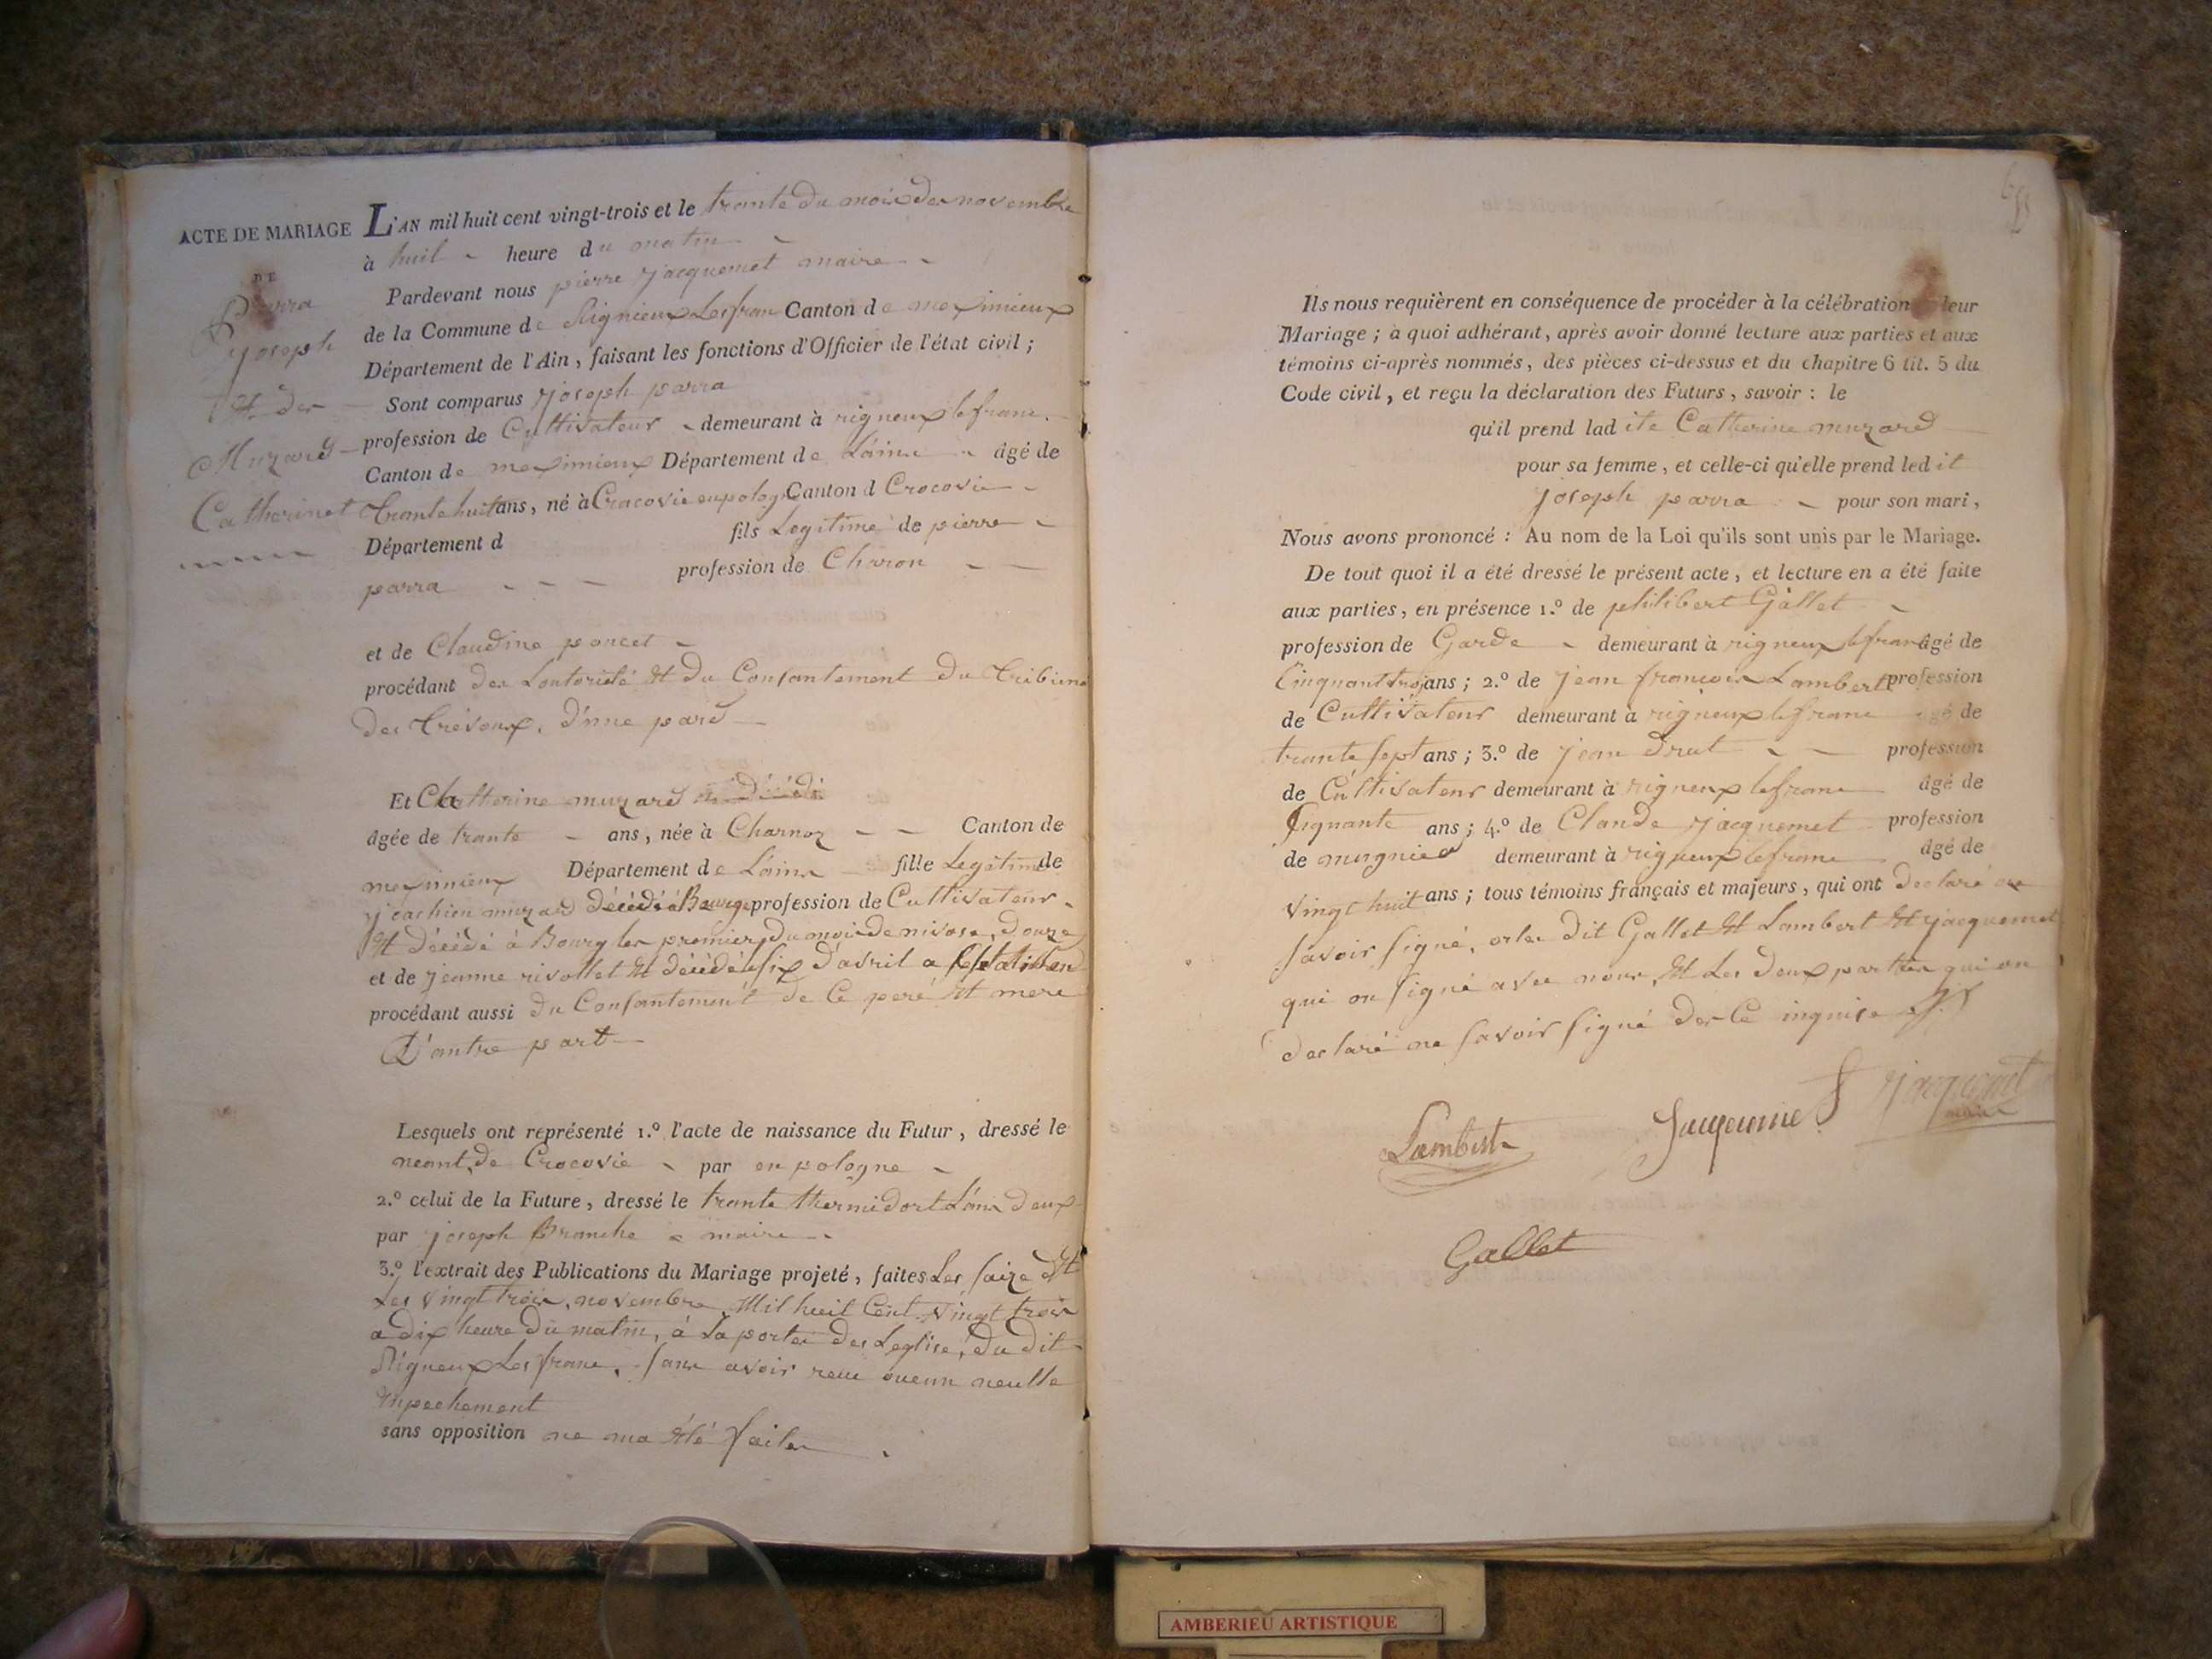 ACTE DE MARIAGE
DE
Parra
Joseph
Et des
Muzard
Catherinet
L'AN mil huit cent vingt-trois et le trante du mois des novembre
à huit heure du matin
Pardevant nous pierre jacquemet maire
de la Commune de Rignieux Les fran Canton de meximieux
Département de l'Ain, faisant les fonctions d'Officier de l'état civil;
Sont comparus joseph parra
profession de Cultivateur demeurant à rigneux le franc
Canton de meximieux Département de Láin âgé de
trante huit ans, né à Cracovie en pologne Canton d Crocovie
Département d fils Legitime de pierre
parra profession de Charon
et de Claudine poncet
procédant des Lautorieté et du Consantement du tribuna
des trévoux, d'une pard
Et Chatterine muzard
âgée de trante ans, née à Charnoz Canton de
meximieux Département de Láin fille Legitime de
jeachien muzard décédé à Bourge profession de Cultivateur
Et décédé à Bourg les premier du mois de nivose, douze
et de jeanne rivollet et décédé six d'avril a
procédant aussi du Consantement de Ce peré et mere
D'autre part
Lesquels ont représenté 1.º l'acte de naissance du Futur, dressé le
neant, de Crocovie par en pologne
2.º celui de la Future, dressé le trante thermidort Lán deux
par joseph Branche maire
3.º l'extrait des Publications du Mariage projeté, faites Les saize et
Les vingt trois, novembre Mil huit Cent vingt trois
a dix heure du matin, à La portée des Leglise, du dit
Rigneux Les franc, sans avoir reçu aucun neulle
Enpechement
sans opposition ne ma été faites
Ils nous requièrent en conséquence de procéder à la célébration leur
Mariage; à quoi adhérant, après avoir donné lecture aux parties et aux
témoins ci-après nommés, des pièces ci-dessus et du chapitre 6 tit. 5 du
Code civil, et reçu la déclaration des Futurs, savoir: le
qu'il prend ladite Catherine muzard
pour sa femme, et celle-ci qu'elle prend ledit
joseph parra pour son mari,
Nous avons prononcé: Au nom de la Loi qu'ils sont unis par le Mariage.
De tout quoi il a été dressé le présent acte, et lecture en a été faite
aux parties, en présence 1.º de philibert Gallet
profession de Garde demeurant à rigneux le franc âgé de
Cinquant trois ans; 2.º de jean françois Lambert profession
de Cultivateur demeurant à rigneux le franc âgé de
trante sept ans; 3.º de jean drut profession
de Cultivateur demeurant à rigneux le franc âgé de
Cignante ans; 4.º de Claude jacquemet profession
de mugnier demeurant à rigneux le franc âgé de
vingt huit ans; tous témoins français et majeurs, qui ont declaré
savoir signé, or les dit Gallet et Lambert et jacquemet
qui on signé avec nous, et Les deux parties qui on
declaré ne savoir signé des Ce inquise
Lambert
jacquemet
maire
Gallet
AMBERIEU ARTISTIQUE